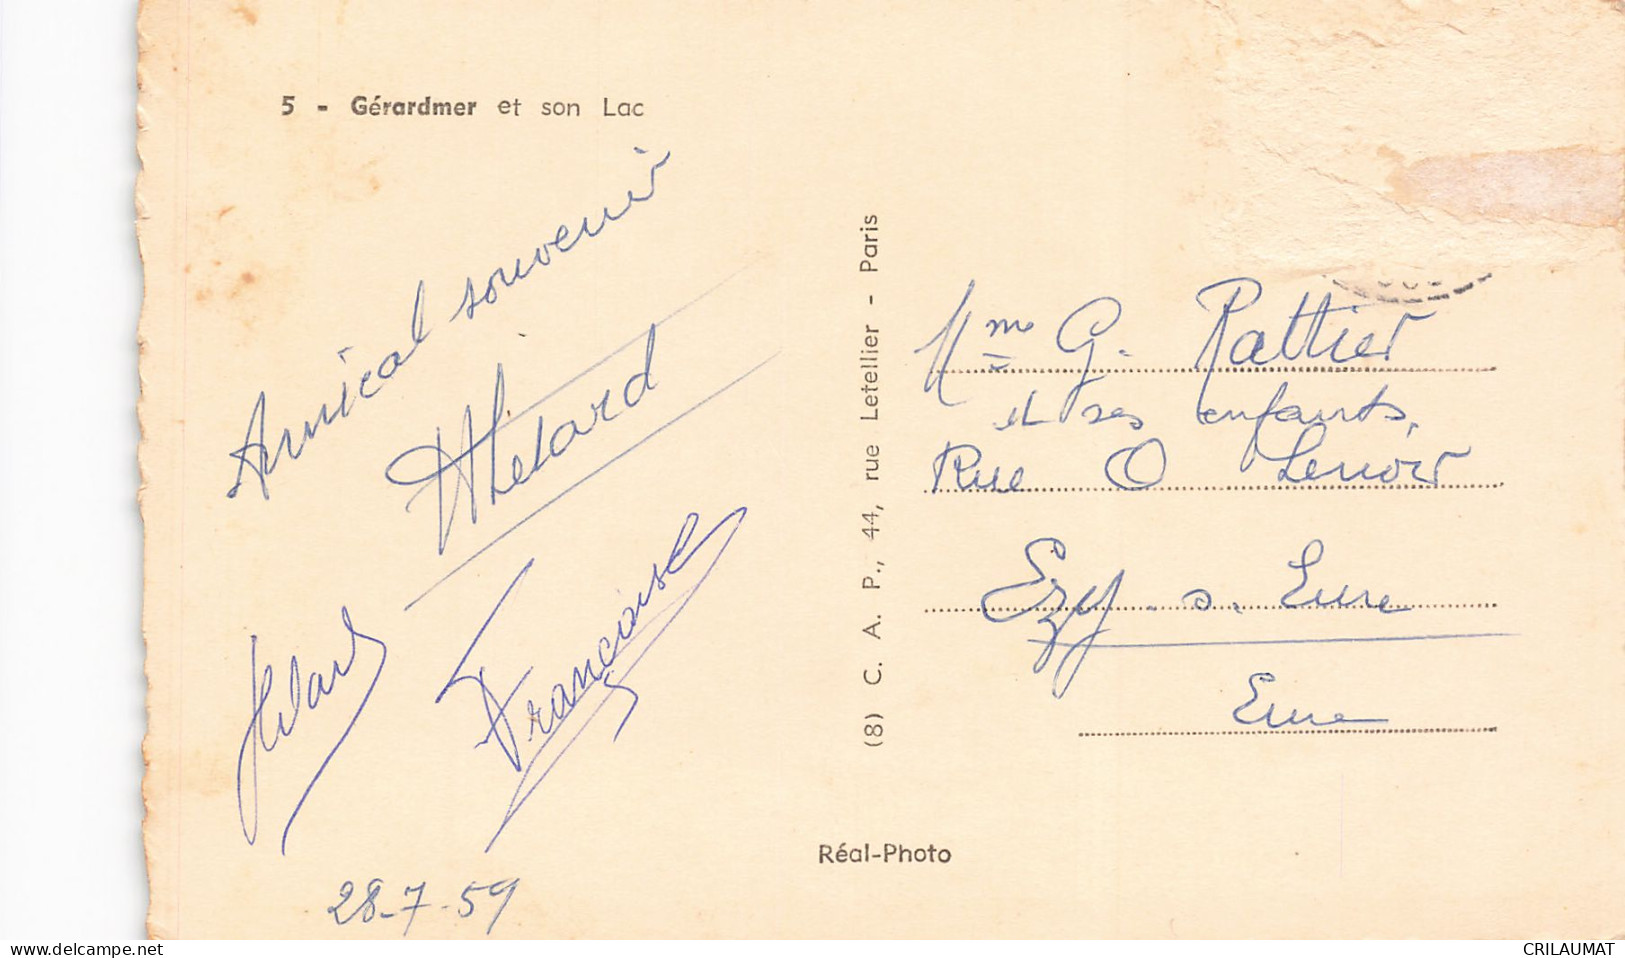 5 - Gérardmer et son Lac
Amical souvenir
Françoise
28-7-59
(8) C. A. P., 44, rue Letellier - Paris
Réal-Photo
Mme G. Rattier
et ses enfants,
Rue O Lenoir
Ezy s. Eure
Eure
www.delcampe.net
CRILAUMAT